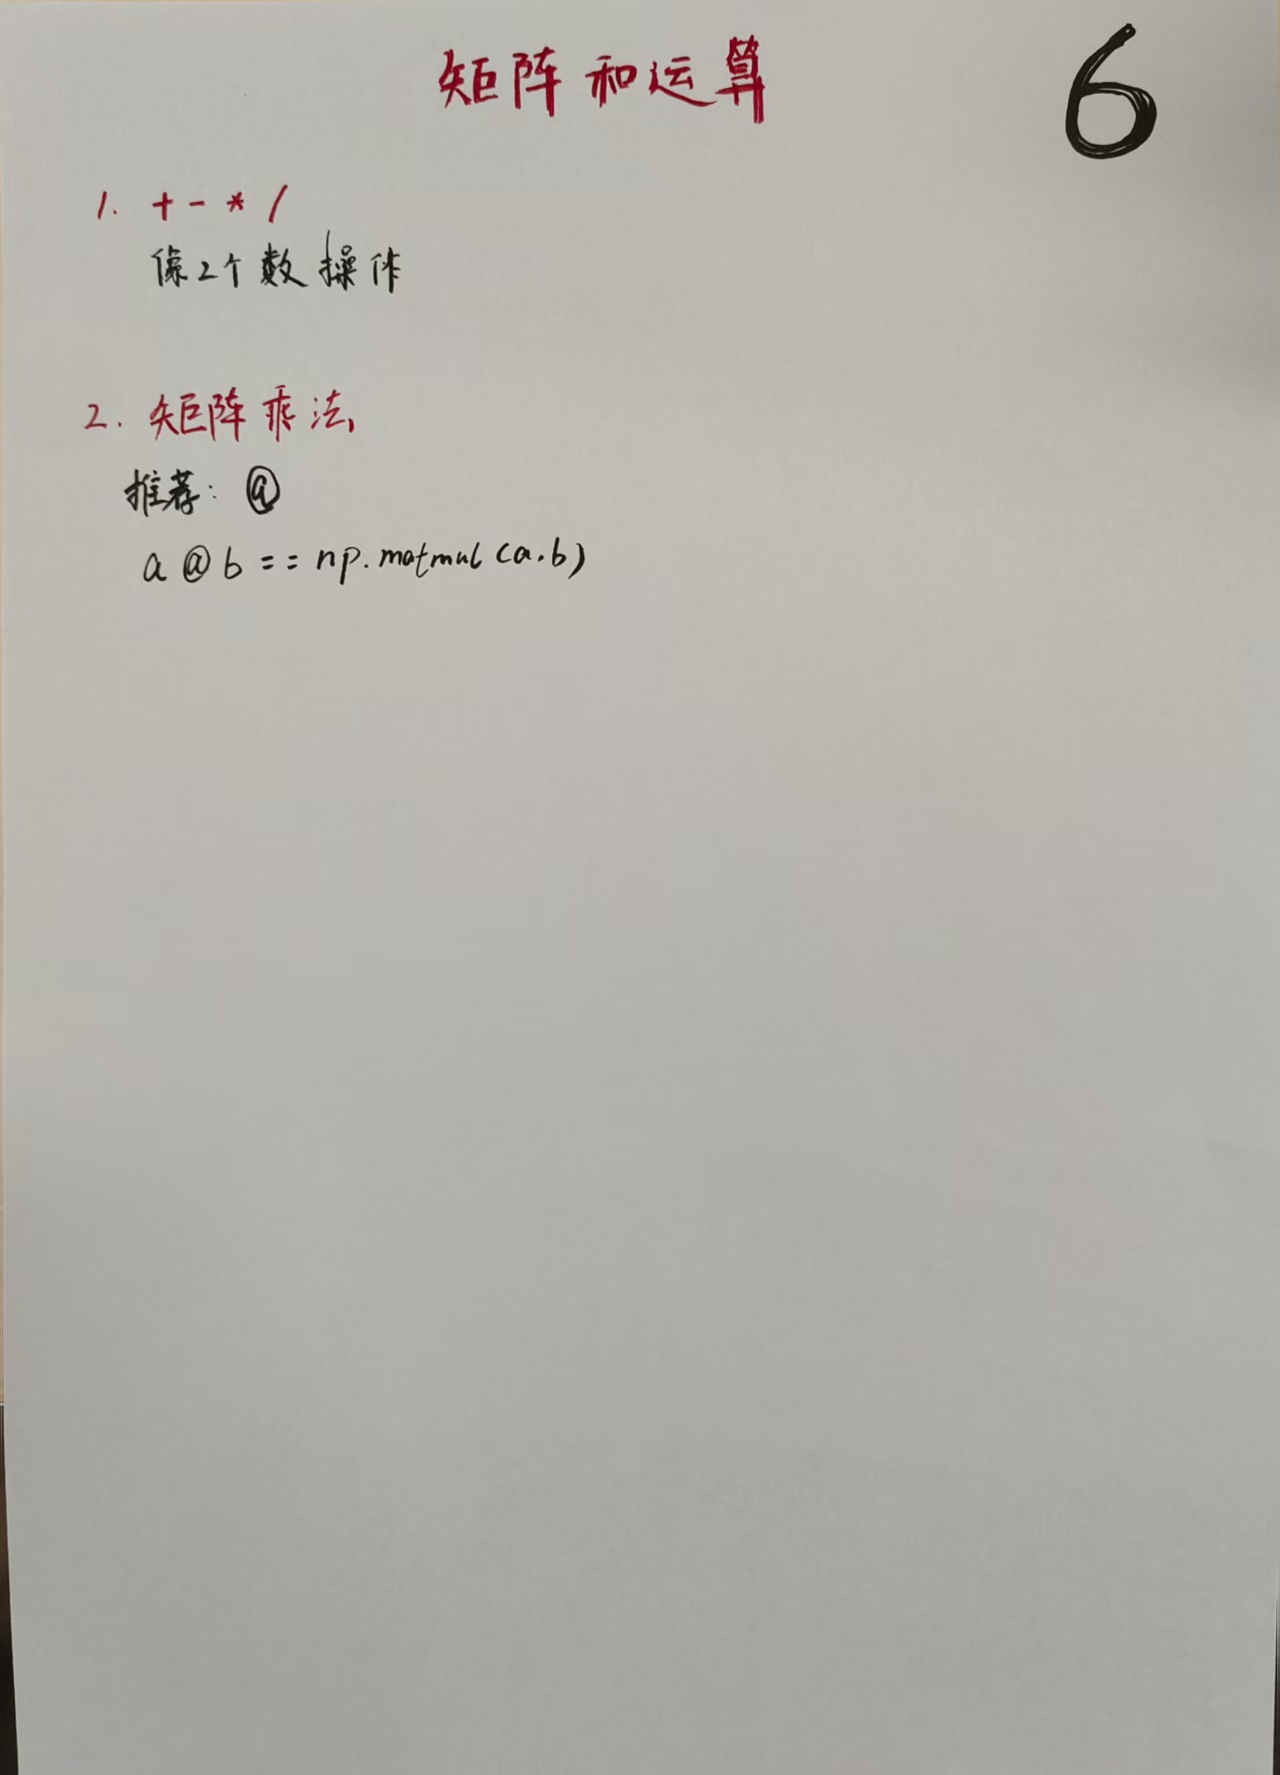 矩阵和运算
6
1. + - * /
像2个数操作
2. 矩阵乘法
推荐: @
a @ b == np.matmul(a.b)